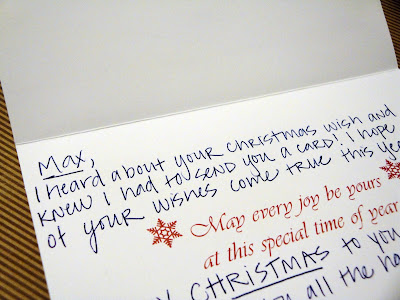 Max,
I heard about your christmas wish and
knew I had to send you a card! I hope
of your wishes come true this
May every joy be yours
at this special time of year
CHRISTMAS to you
all the